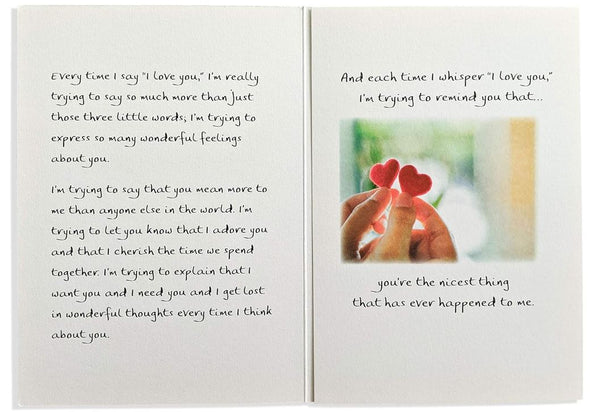 Every time I say "I love you," I'm really
trying to say so much more than just
those three little words; I'm trying to
express so many wonderful feelings
about you.
I'm trying to say that you mean more to
me than anyone else in the world. I'm
trying to let you know that I adore you
and that I cherish the time we spend
together. I'm trying to explain that I
want you and I need you and I get lost
in wonderful thoughts every time I think
about you.
And each time I whisper "I love you,"
I'm trying to remind you that...
you're the nicest thing
that has ever happened to me.